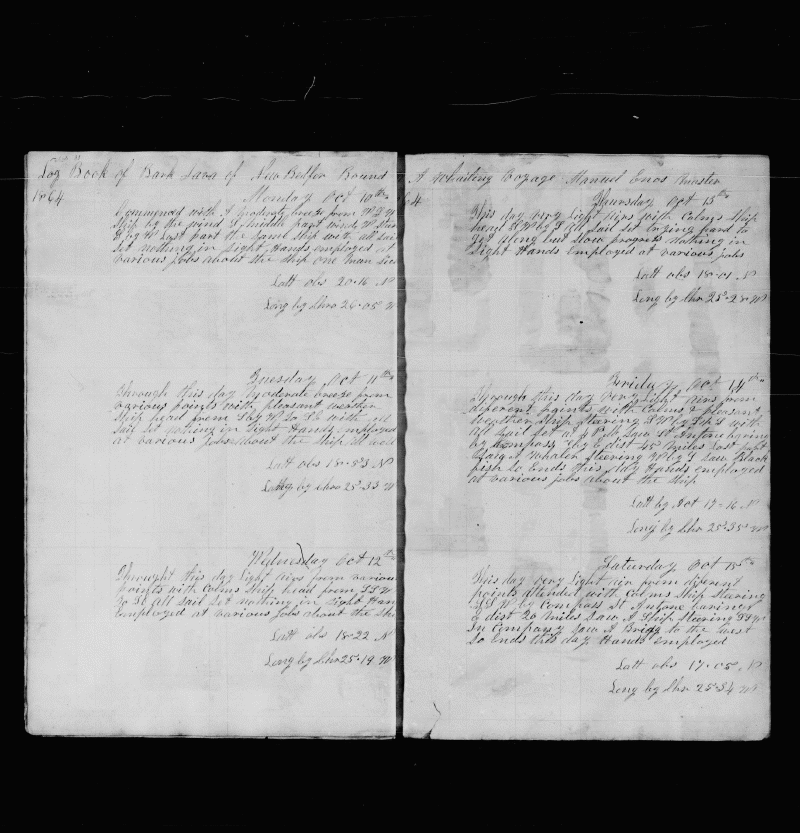 Log Book of Bark Lava of New Bedfor Bound
1864
Monday Oct 10th
Commenced with A Moderate breeze from
Ship by the wind middle part wind
by W Last part the Same Ship with all Sail
Set nothing in Sight Hands employed at
various jobs about the Ship one man
Latt obs 20-16 N
Long by Chro 26-05 W
Tuesday Oct 11th
Through this day Moderate breeze from
various points with pleasant weather
Ship head from S by W to with all
Sail Set nothing in Sight Hands employed
at various jobs about the Ship All well
Latt obs 18-53 N
Long by Chro 25-33 W
Wednesday Oct 12th
Throught this day light airs from various
points with Calms Ship head from SSW
to All Sail Set nothing in Sight Han
employed at various jobs about the Sh
Latt obs 18-22 N
Long by Chro 25-19 W
A Whaiting Voyage Manuel Enos Master
64
Thursday Oct 13th
This day very light airs with Calms Ship
head SW by S All Sail Set trying hard to
get along but Slow progress Nothing in
Sight Hands Employed at various jobs
Latt obs 18-01 N
Long by Chro 25-28 W
Friday Oct 14th
Through this day very light airs from
diferent points with Calms & pleasant
Weather Ship Stearing SW by S with
All Sail Set at Saw St Antone baring
by Compass by E dist 65 miles
Whaler Steering W by S Saw Black
fish So Ends this day Hands employed
at various jobs about the Ship
Latt by Act 17-16 N
Long by Chro 25-35 W
Saturday Oct 15th
This day very light air from diferent
points atended with Calms Ship Steering
SSW by Compass St Antone baring
dist 20 miles Saw A Ship Steering SSW
In Company Saw A Brigg to the west
So Ends this day Hands Employed
Latt obs 17-05 N
Long by Chro 25-34 W